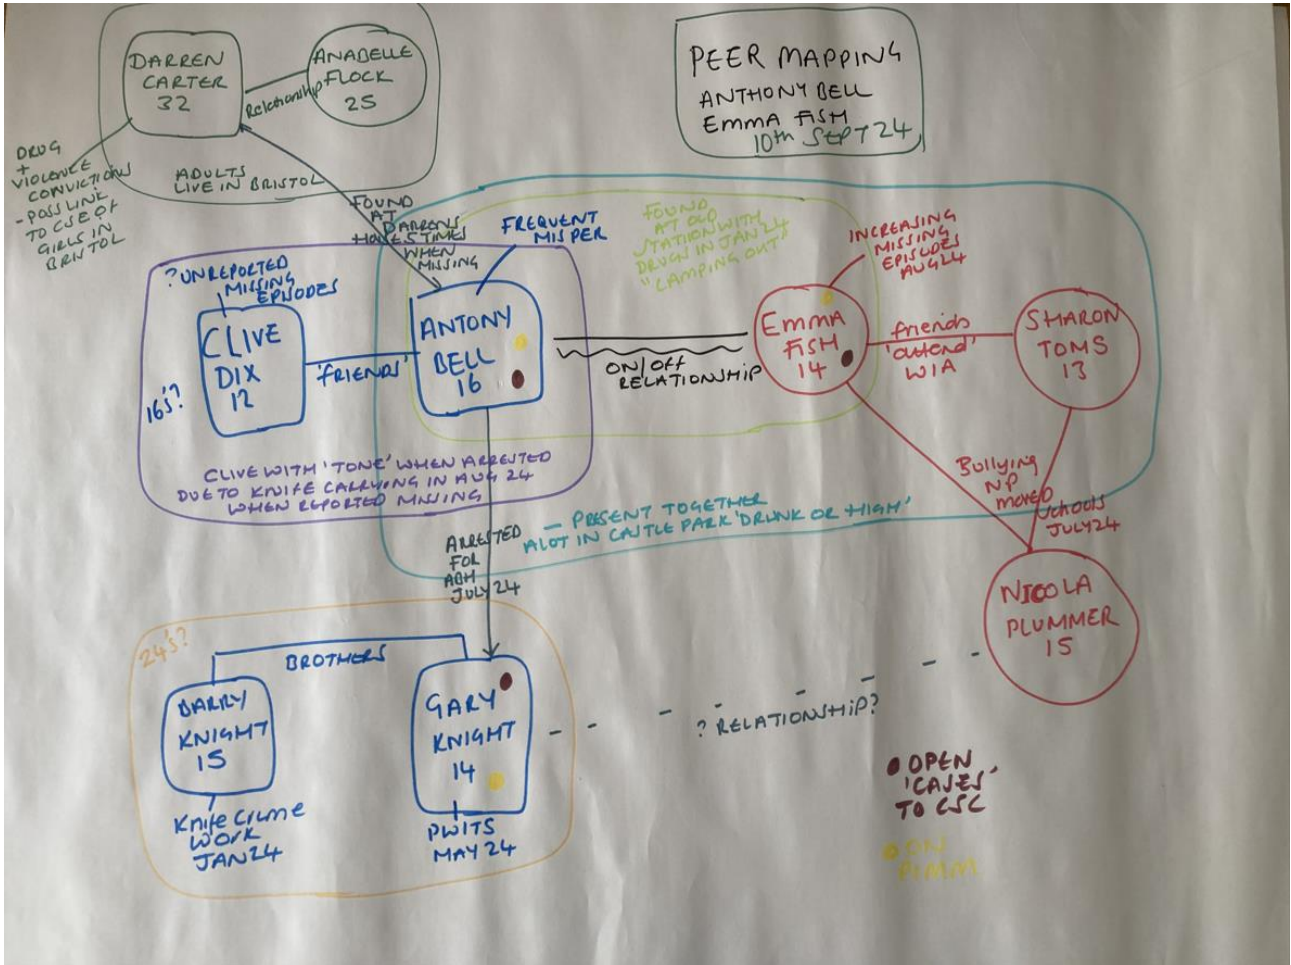 DARREN
CARTER
32
Relationship
ANABELLE
FLOCK
25
DRUG
+
VIOLENCE
CONVICTIONS
- POSS LINK
TO CSE OF
GIRLS IN
BRISTOL
ADULTS
LIVE IN BRISTOL
PEER MAPPING
ANTHONY BELL
EMMA FISH
10th SEPT 24
FOUND
AT
DARRENS
HOUSE 5 TIMES
WHEN
MISSING
FREQUENT
MISPER
FOUND
AT OLD
STATION WITH
DRUGS IN JAN 24
"CAMPING OUT"
INCREASING
MISSING
EPISODES
AUG 24
? UNREPORTED
MISSING
EPISODES
16s'?
CLIVE
DIX
12
'FRIENDS'
ANTONY
BELL
16
ON/OFF
RELATIONSHIP
EMMA
FISH
14
friends
'attend'
WIA
SHARON
TOMS
13
CLIVE WITH 'TONE' WHEN ARRESTED
DUE TO KNIFE CARRYING IN AUG 24
WHEN REPORTED MISSING
- PRESENT TOGETHER
ALOT IN CASTLE PARK 'DRUNK OR HIGH'
Bullying
NP
moved
schools
JULY 24
ARRESTED
FOR
ABH
JULY 24
NICOLA
PLUMMER
15
24's?
BROTHERS
BARRY
KNIGHT
15
GARY
KNIGHT
14
? RELATIONSHIP?
Knife Crime
WORK
JAN 24
PWITS
MAY 24
OPEN
'CASES'
TO CSC
ON
PIMM